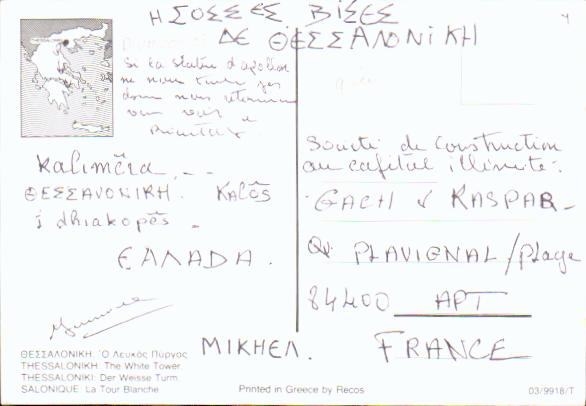 Η ΣΟΣΣΕΣ ΒΙΣΕΣ
ΔΕ ΘΕΣΣΑΛΟΝΙΚΗ
Si la statue d'apollon
ne nous
donc nous
Kaliméra, - -
ΘΕΣΣΑVΟΝΙΚΗ. Kalõs
j dhiakopẽs -
ΕΛΛΑDΑ.
ΜΙΚΗΕΛ.
Société de Construction
au capital illimité.
GACH & KASPAR-
Qr PLAVIGNAL/Plage
84400 APT
FRANCE
ΘΕΣΣΑΛΟΝΙΚΗ: Ὁ Λευκός Πύργος
THESSALONIKI: The White Tower
THESSALONIKI: Der Weisse Turm
SALONIQUE: La Tour Blanche
Printed in Greece by Recos
03/9918/T